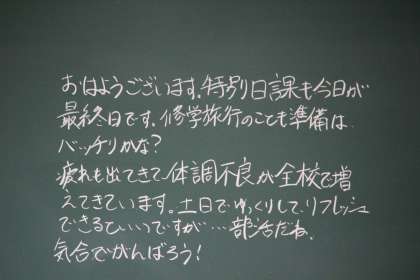 おはようございます。特別日課も今日が
最終日です。修学旅行のことも準備は
バッチリかな?
疲れも出てきて、体調不良が全校で増
えてきています。土日でゆっくりして、リフレッシュ
できるといいですが…部活だね。
気合でがんばろう!